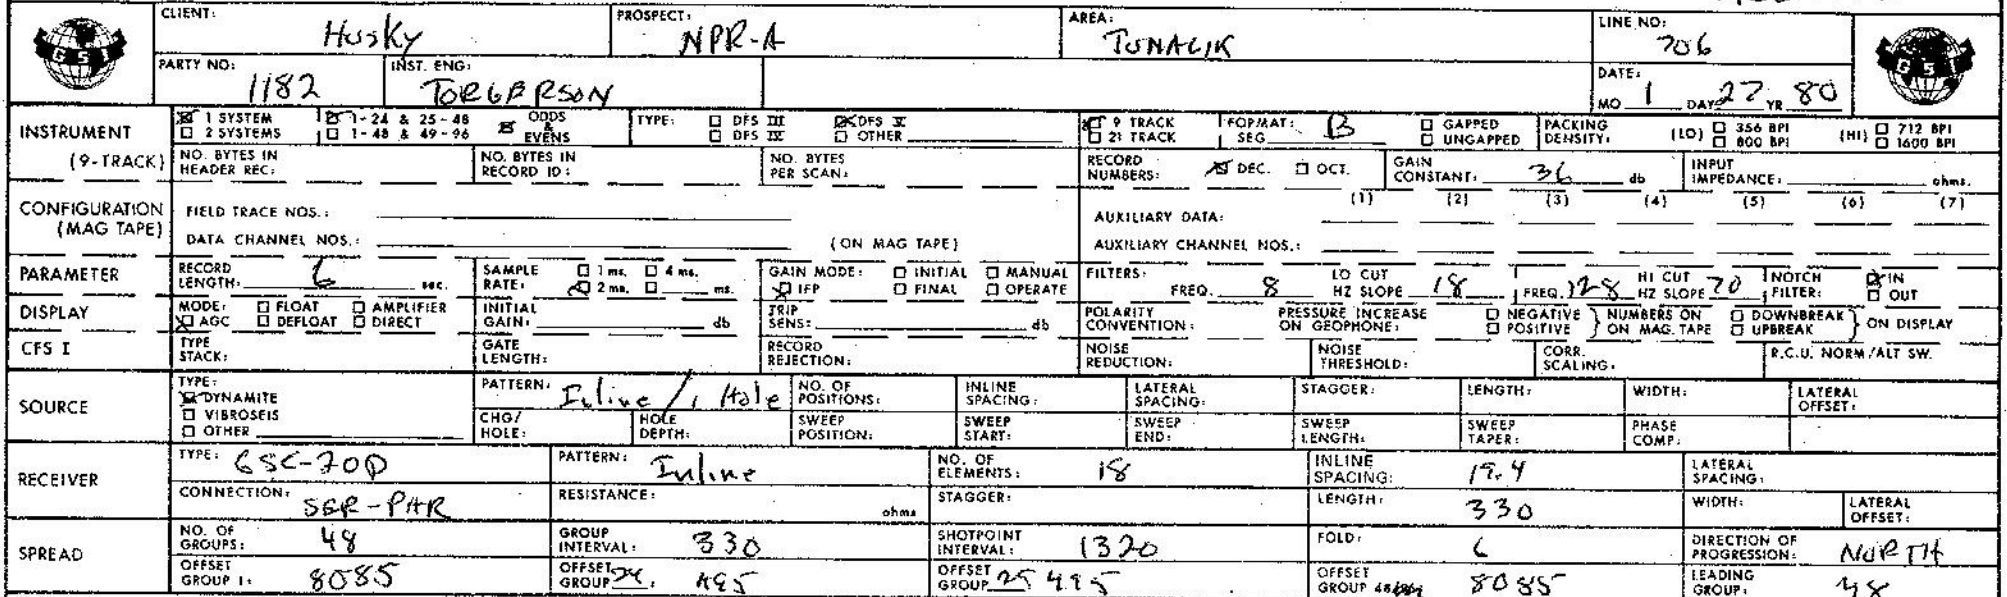 CLIENT: Husky PROSPECT: NPR-A AREA: TUNALIK LINE NO: 706
GSI GSI
PARTY NO: 1182 INST. ENG: TORGERSON DATE: MO 1 DAY 27 YR 80
INSTRUMENT ☒ 1 SYSTEM ☒ 1-24 & 25-48 ☒ ODDS & EVENS TYPE: ☐ DFS III ☒ DFS V ☒ 9 TRACK FORMAT: SEG B ☐ GAPPED PACKING DENSITY: (LO) ☐ 356 BPI (HI) ☐ 712 BPI
☐ 2 SYSTEMS ☐ 1-48 & 49-96 ☐ DFS IV ☐ OTHER ☐ 21 TRACK ☐ UNGAPPED ☐ 800 BPI ☐ 1600 BPI
(9-TRACK) NO. BYTES IN HEADER REC: NO. BYTES IN RECORD ID: NO. BYTES PER SCAN: RECORD NUMBERS: ☒ DEC. ☐ OCT. GAIN CONSTANT: 36 db INPUT IMPEDANCE: ohms.
CONFIGURATION (MAG TAPE) FIELD TRACE NOS.: AUXILIARY DATA: (1) (2) (3) (4) (5) (6) (7)
DATA CHANNEL NOS.: (ON MAG TAPE) AUXILIARY CHANNEL NOS.:
PARAMETER RECORD LENGTH: 6 sec. SAMPLE RATE: ☐ 1 ms. ☐ 4 ms. ☒ 2 ms. ☐ ms. GAIN MODE: ☐ INITIAL ☐ MANUAL ☒ IFP ☐ FINAL ☐ OPERATE FILTERS: FREQ. 8 LO CUT HZ SLOPE 18 FREQ. 128 HI CUT HZ SLOPE 70 NOTCH FILTER: ☒ IN ☐ OUT
DISPLAY MODE: ☐ FLOAT ☐ AMPLIFIER ☒ AGC ☐ DEFLOAT ☐ DIRECT INITIAL GAIN: db TRIP SENS: db POLARITY CONVENTION: PRESSURE INCREASE ON GEOPHONE: ☐ NEGATIVE ☐ POSITIVE } NUMBERS ON ON MAG. TAPE ☐ DOWNBREAK ☐ UPBREAK } ON DISPLAY
CFS I TYPE STACK: GATE LENGTH: RECORD REJECTION: NOISE REDUCTION: NOISE THRESHOLD: CORR. SCALING: R.C.U. NORM/ALT SW.
SOURCE TYPE: ☒ DYNAMITE ☐ VIBROSEIS ☐ OTHER PATTERN: Inline / 1 Hole NO. OF POSITIONS: INLINE SPACING: LATERAL SPACING: STAGGER: LENGTH: WIDTH: LATERAL OFFSET:
CHG/ HOLE: HOLE DEPTH: SWEEP POSITION: SWEEP START: SWEEP END: SWEEP LENGTH: SWEEP TAPER: PHASE COMP:
RECEIVER TYPE: GSC-20D PATTERN: Inline NO. OF ELEMENTS: 18 INLINE SPACING: 19.4 LATERAL SPACING:
CONNECTION: SER-PAR RESISTANCE: ohms STAGGER: LENGTH: 330 WIDTH: LATERAL OFFSET:
SPREAD NO. OF GROUPS: 48 GROUP INTERVAL: 330 SHOTPOINT INTERVAL: 1320 FOLD: 6 DIRECTION OF PROGRESSION: NORTH
OFFSET GROUP 1: 8085 OFFSET GROUP 24: 495 OFFSET GROUP 25 495 OFFSET GROUP 48 8085 LEADING GROUP: 48